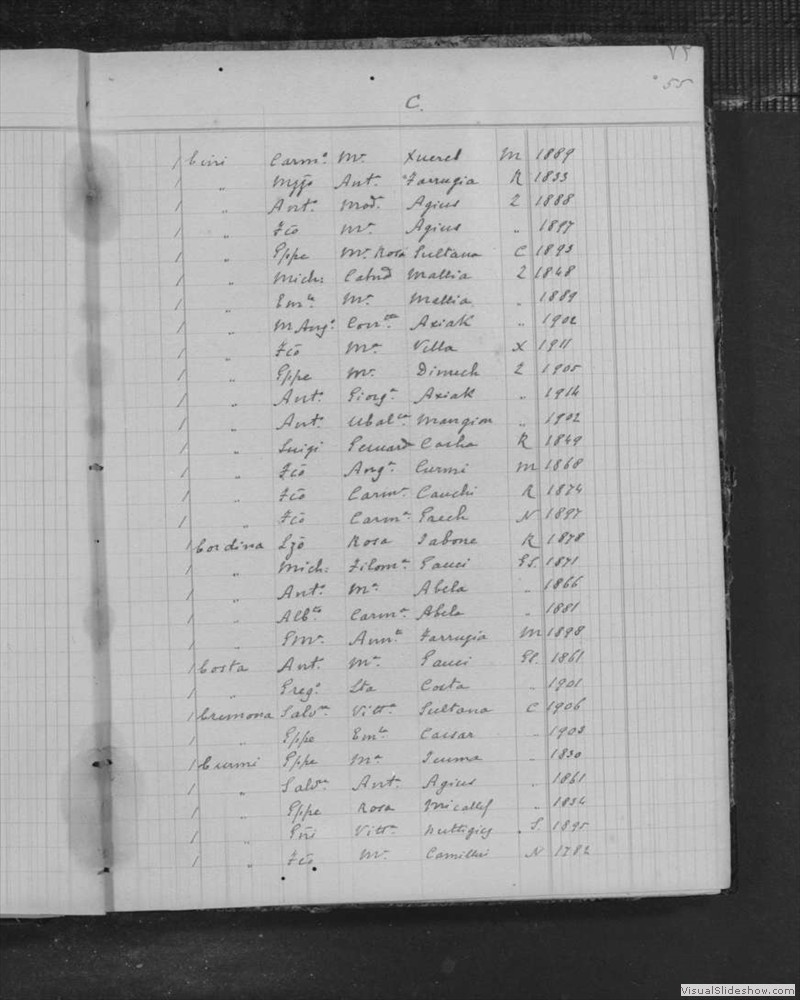 55
C.
1 Cini Carm.o M.a Xuereb M 1889
1 " Ant. Farrugia R 1833
1 " Ant.o Mad. Agius 2 1888
1 " Fco M.a Agius " 1897
1 " Gppe M.a Rosa Sultana C 1893
1 " Mich: Mallia 2 1848
1 " M.a Mallia " 1889
1 " M Ang.o Axiak " 1902
1 " Fco M.a Vella X 1911
1 " Gppe M.a Dimech 2 1905
1 " Ant.o Giorg.a Axiak " 1914
1 " Ant.o Mangion " 1902
1 " Luigi R 1849
1 " Fco Ang.a Curmi M 1868
1 " Fco Carm.a Cauchi R 1874
1 " Fco Carm.a Grech N 1897
1 Cordina Rosa Tabone R 1878
1 " Mich: Filom.a Gauci 1871
1 " Ant.o M.a Abela " 1866
1 " Carm.a Abela " 1881
1 " Farrugia M 1898
1 Costa Ant.o M.a Gauci 1861
1 " Greg.o Costa " 1901
1 Cremona Salv.re Vitt.a Sultana C 1906
1 " Gppe Caesar " 1903
1 Curmi Gppe M.a " 1830
1 " Salv.re Ant.a Agius " 1861
1 " Gppe Rosa Micallef " 1834
1 " Vitt.a S. 1895
1 " Fco M.a Camilleri N 1782
VisualSlideshow.com